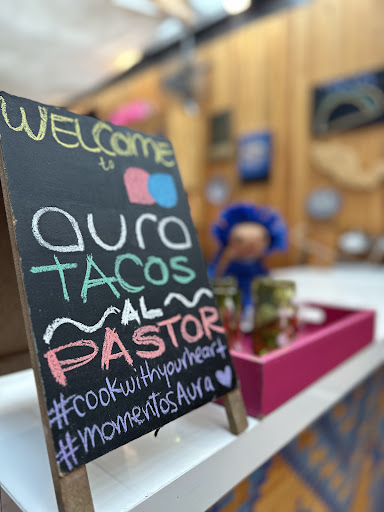 WELCOME
to
aura
TACOS
AL
PASTOR
#cookwithyourheart
#momentosAura